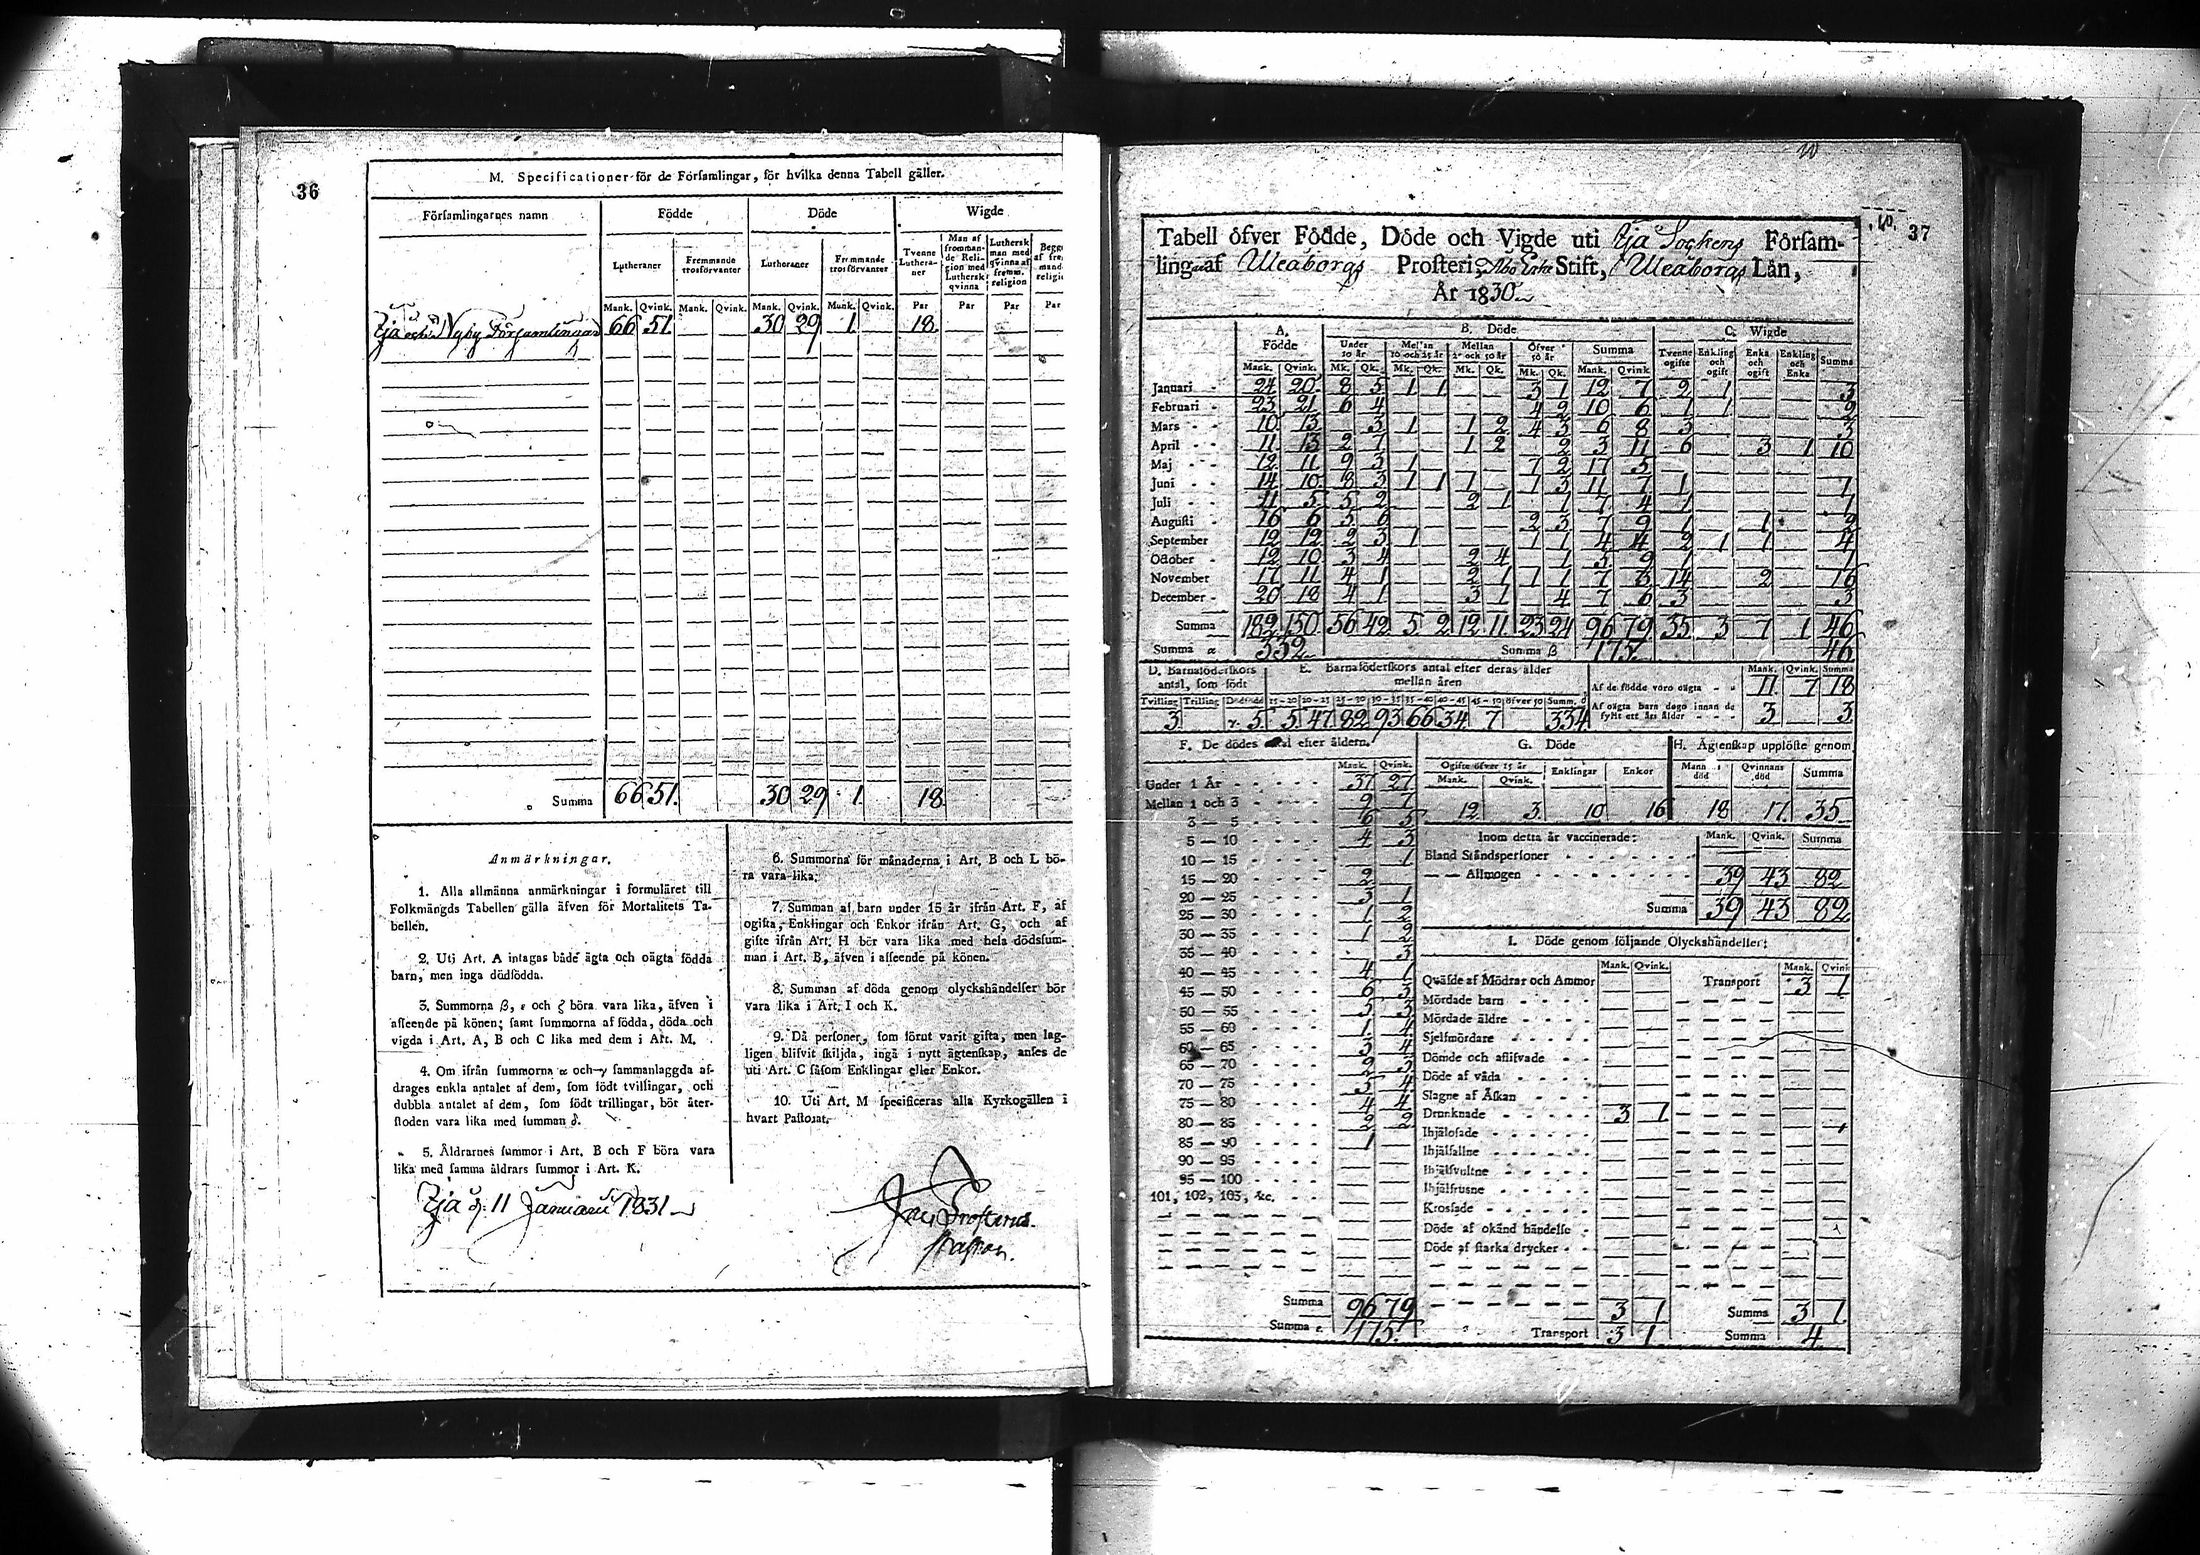 36
M. Specificationer för de Förſamlingar, för hvilka denna Tabell gäller.
Förſamlingarnes namn | Födde | Döde | Wigde
Lutheraner | Fremmande trosförvanter | Lutheraner | Fremmande trosförvanter | Tvenne Lutheraner | Man af frommande Religion med Luthersk qvinna | Luthersk man med qvinna af fremm. religion
Mank. | Qvink. | Mank. | Qvink. | Mank. | Qvink. | Mank. | Qvink. | Par | Par | Par | Par
Ijå och Nyby Församlingar | 66 | 51 | 30 | 29 | 1 | 18
Summa | 66 | 51. | 30 | 29 | 1. | 18
Anmärkningar.
1. Alla allmänna anmärkningar i formuläret till
Folkmängds Tabellen gälla äfven för Mortalitets Ta-
bellen.
2. Uti Art. A intagas både ägta och oägta födda
barn, men inga dödfödda.
3. Summorna β, ε och ζ böra vara lika, äfven i
afſeende på könen; ſamt ſummorna af födda, döda och
vigda i Art. A, B och C lika med dem i Art. M.
4. Om ifrån ſummorna α och γ ſammanlaggda af-
drages enkla antalet af dem, ſom födt tvillingar, och
dubbla antalet af dem, ſom födt trillingar, bör åter-
ſtoden vara lika med ſumman δ.
5. Åldrarnes ſummor i Art. B och F böra vara
lika med ſamma åldrars ſummor i Art. K.
6. Summorna för månaderna i Art. B och L bö-
ra vara lika.
7. Summan af barn under 15 år ifrån Art. F, af
ogifta, Enklingar och Enkor ifrån Art. G, och af
gifte ifrån Art. H bör vara lika med hela dödsſum-
man i Art. B, äfven i afſeende på könen.
8. Summan af döda genom olyckshändelſer bör
vara lika i Art. I och K.
9. Då perſoner, ſom förut varit gifta, men lag-
ligen blifvit ſkiljda, ingå i nytt ägtenſkap, anſes de
uti Art. C ſåſom Enklingar eller Enkor.
10. Uti Art. M ſpecificeras alla Kyrkogällen i
hvart Paſtorat.
Ijå d. 11 Januarii 1831
37
Tabell öfver Födde, Döde och Vigde uti Ijå Sockens Förſam-
ling af Uleåborgs Proſteri, Åbo Erke Stift, Uleåborgs Län,
År 1830
A. Födde | B. Döde | C. Wigde
Under 10 år | Mellan 10 och 25 år | Mellan 25 och 50 år | Öfver 50 år | Summa | Tvenne ogifte | Enkling och ogift | Enka och ogift | Enkling och Enka | Summa
Mank. | Qvink. | Mk. | Qk. | Mk. | Qk. | Mk. | Qk. | Mk. | Qk. | Mank. | Qvink
Januari | 24 | 20 | 8 | 5 | 1 | 1 | 3 | 1 | 12 | 7 | 2 | 1 | 3
Februari | 23 | 21 | 6 | 4 | 4 | 2 | 10 | 6 | 1 | 1 | 2
Mars | 10 | 13 | 3 | 1 | 1 | 2 | 4 | 3 | 6 | 8 | 3 | 3
April | 11 | 13 | 2 | 7 | 1 | 2 | 2 | 3 | 11 | 6 | 3 | 1 | 10
Maj | 12 | 11 | 9 | 3 | 1 | 7 | 2 | 17 | 5
Juni | 14 | 10 | 8 | 3 | 1 | 1 | 1 | 1 | 3 | 11 | 7 | 1 | 1
Juli | 11 | 5 | 5 | 2 | 2 | 1 | 1 | 7 | 4 | 1 | 1
Auguſti | 16 | 6 | 5 | 6 | 2 | 3 | 7 | 9 | 1 | 1 | 2
September | 12 | 12 | 2 | 3 | 1 | 1 | 1 | 4 | 4 | 2 | 1 | 1 | 4
October | 12 | 10 | 3 | 4 | 2 | 4 | 1 | 5 | 9 | 1 | 1
November | 17 | 11 | 4 | 1 | 2 | 1 | 1 | 1 | 7 | 3 | 14 | 2 | 16
December | 20 | 18 | 4 | 1 | 3 | 1 | 4 | 7 | 6 | 3 | 3
Summa | 182 | 150 | 56 | 42 | 5 | 2 | 12 | 11 | 23 | 24 | 96 | 79 | 35 | 3 | 7 | 1 | 46
Summa α | 332 | Summa β | 175 | 46
D. Barnaföderſkors antal, ſom födt | E. Barnaföderſkors antal efter deras ålder mellan åren | Mank. | Qvink. | Summa
Tvilling | Trilling | Dödfödd | 15–20 | 20–25 | 25–30 | 30–35 | 35–40 | 40–45 | 45–50 | öfver 50 | Summ. δ
3 | γ. 5 | 5 | 47 | 82 | 93 | 66 | 34 | 7 | 334
Af de födde voro oägta | 11 | 7 | 18
Af oägta barn dogo innan de fyllt ett års ålder | 3 | 3
F. De dödes antal efter åldern.
Mank. | Qvink.
Under 1 År | 37 | 27
Mellan 1 och 3 | 9 | 7
3 — 5 | 6 | 5
5 — 10 | 4 | 3
10 — 15 | 1
15 — 20 | 2
20 — 25 | 3 | 1
25 — 30 | 1 | 2
30 — 35 | 1 | 2
35 — 40 | 3
40 — 45 | 4 | 1
45 — 50 | 6 | 3
50 — 55 | 5 | 3
55 — 60 | 1 | 4
60 — 65 | 5 | 4
65 — 70 | 2 | 3
70 — 75 | 3 | 4
75 — 80 | 4 | 4
80 — 85 | 2 | 2
85 — 90 | 1
90 — 95
95 — 100
101, 102, 103, &c.
Summa | 96 | 79
Summa ε. | 175.
G. Döde | H. Ägtenſkap upplöſte genom
Ogifte öfver 15 år | Enklingar | Enkor | Mann död | Qvinnans död | Summa
Mank. | Qvink.
12 | 3 | 10 | 16 | 18 | 17 | 35
Inom detta år vaccinerade: | Mank. | Qvink. | Summa
Bland Ståndsperſoner
— — Allmogen | 39 | 43 | 82
Summa | 39 | 43 | 82
I. Döde genom följande Olyckshändelſer:
Mank. | Qvink. | Mank. | Qvink
Qväfde af Mödrar och Ammor | Transport | 3 | 1
Mördade barn
Mördade äldre
Sjelfmördare
Dömde och aflifvade
Döde af våda
Slagne af Åſkan
Drunknade | 3 | 1
Ihjäloſade
Ihjälfallne
Ihjälſvultne
Ihjälfrusne
Krosſade
Döde af okänd händelſe
Döde af ſtarka drycker
3 | 1 | Summa | 3 | 1
Transport | 3 | 1 | Summa | 4